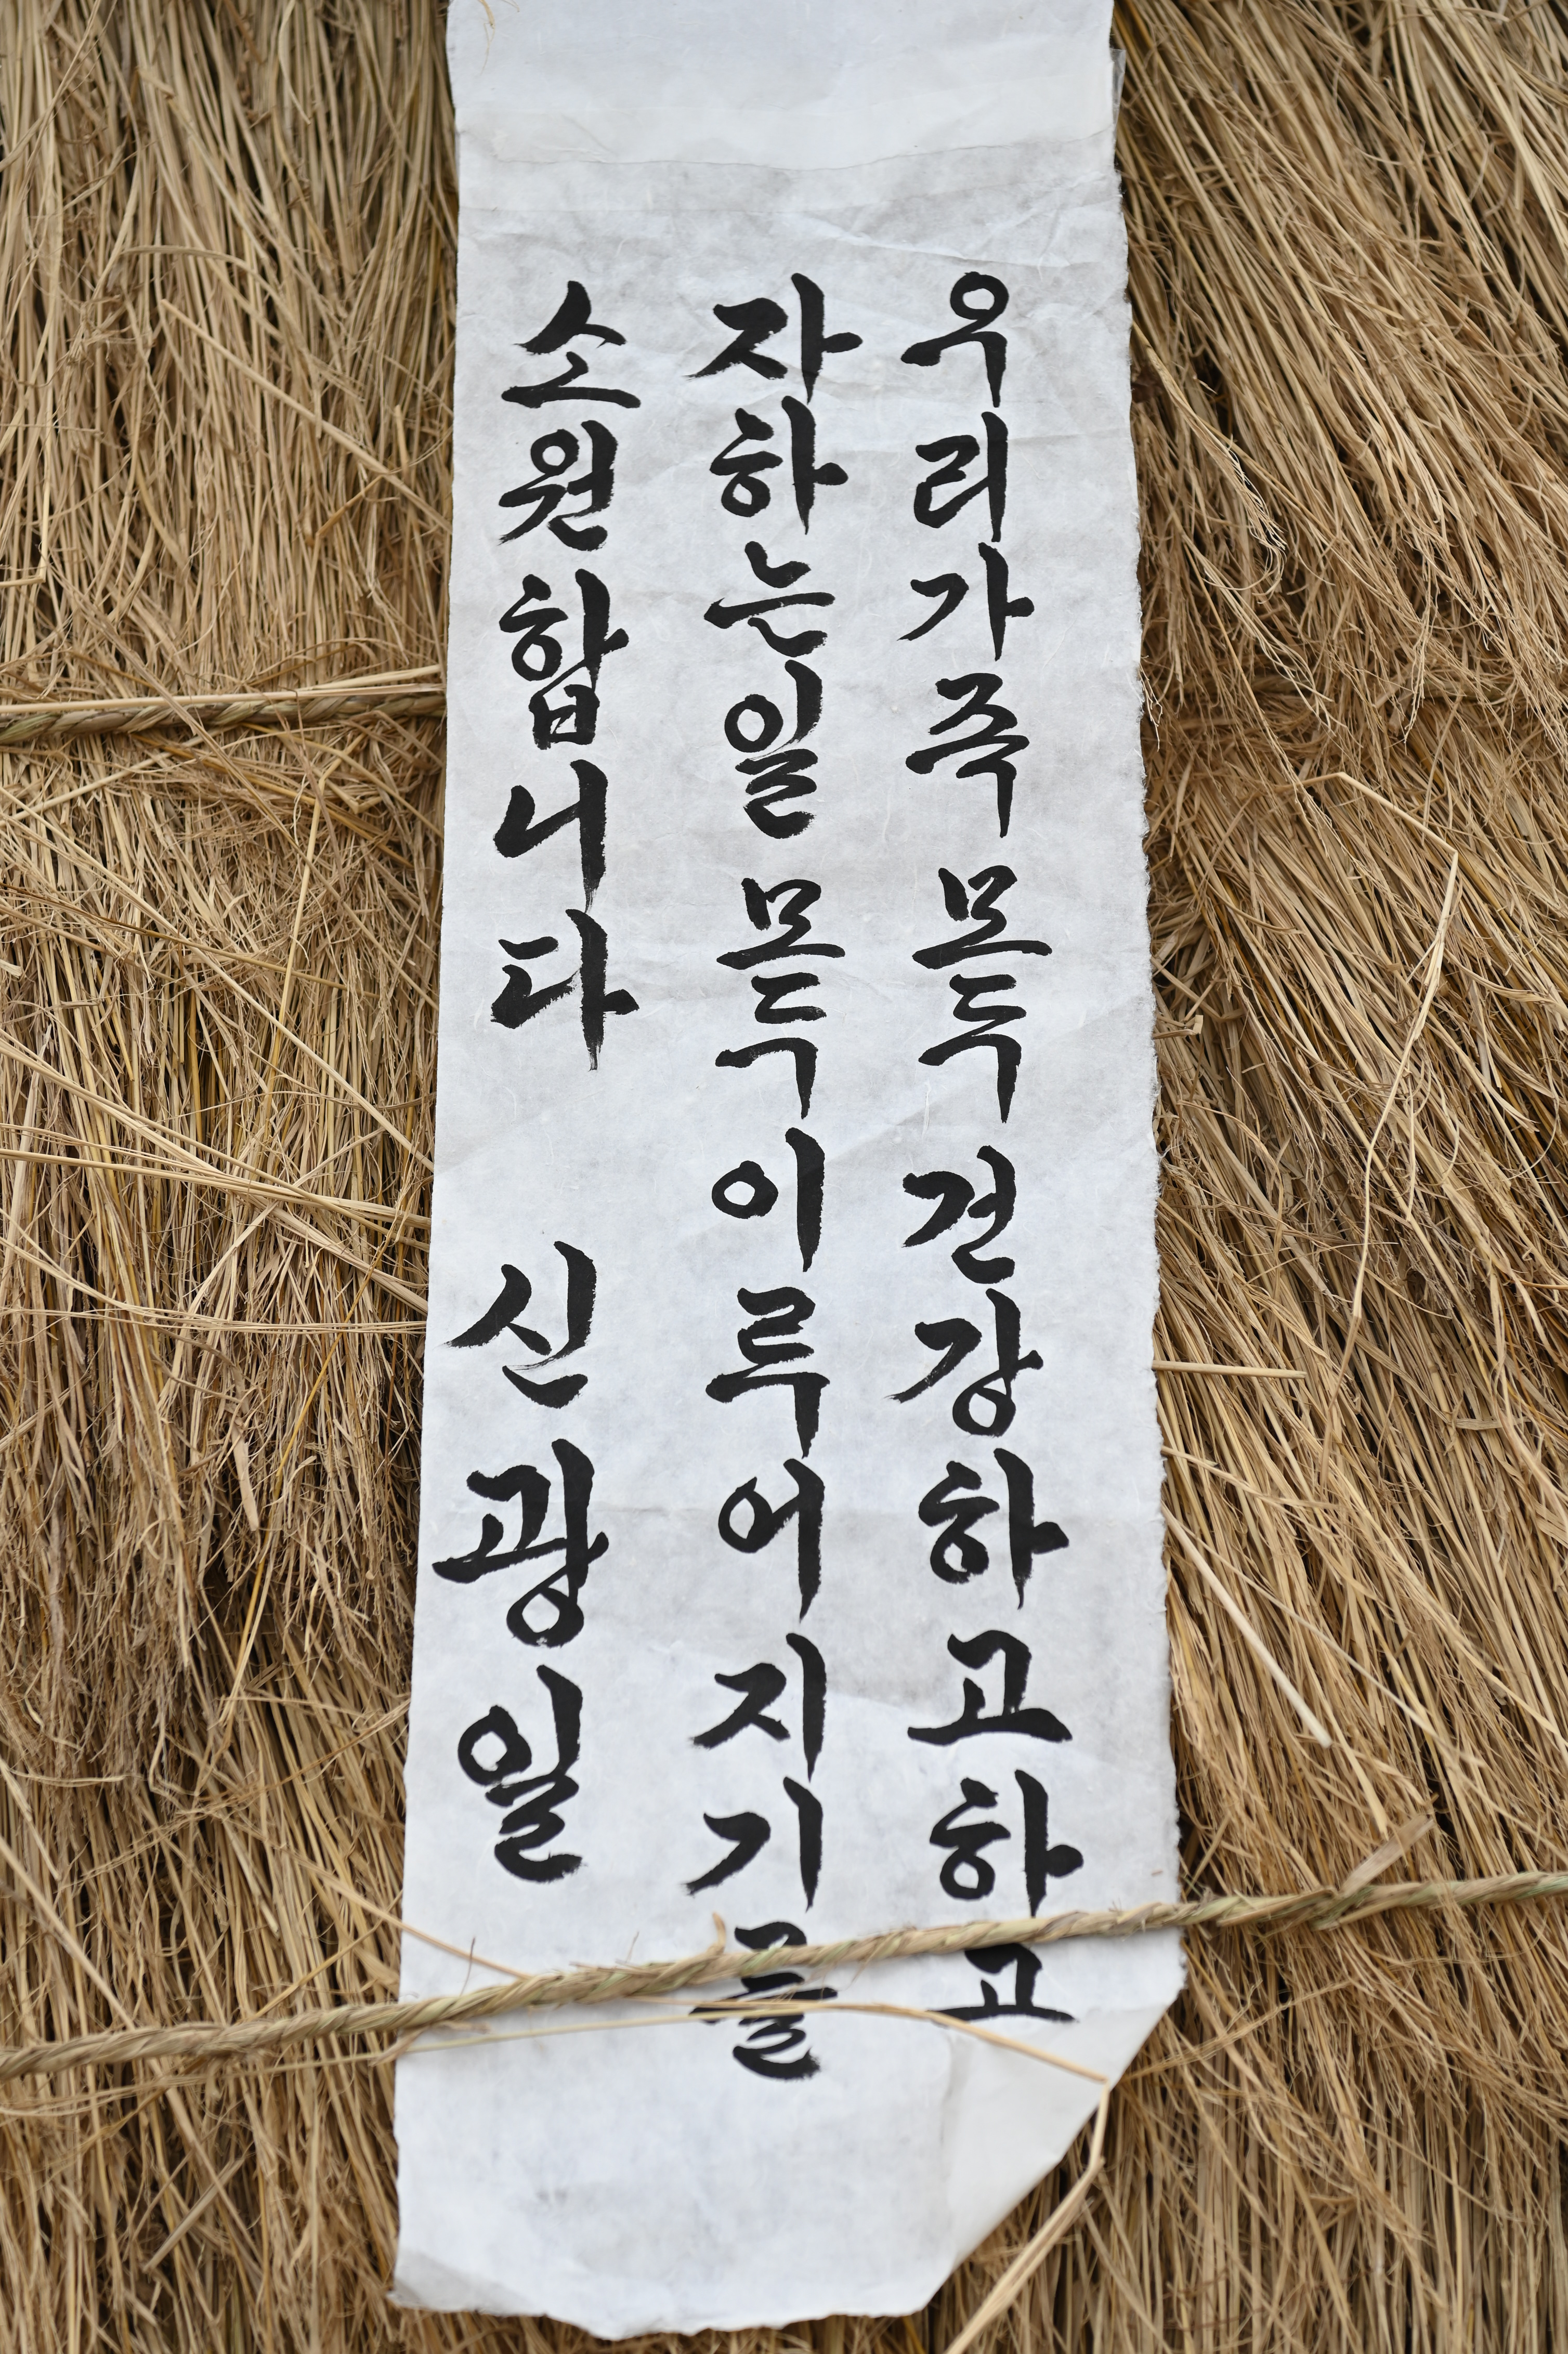 우리가족 모두 건강하고 하고
자하는일 모두 이루어지기를
소원합니다 신광일